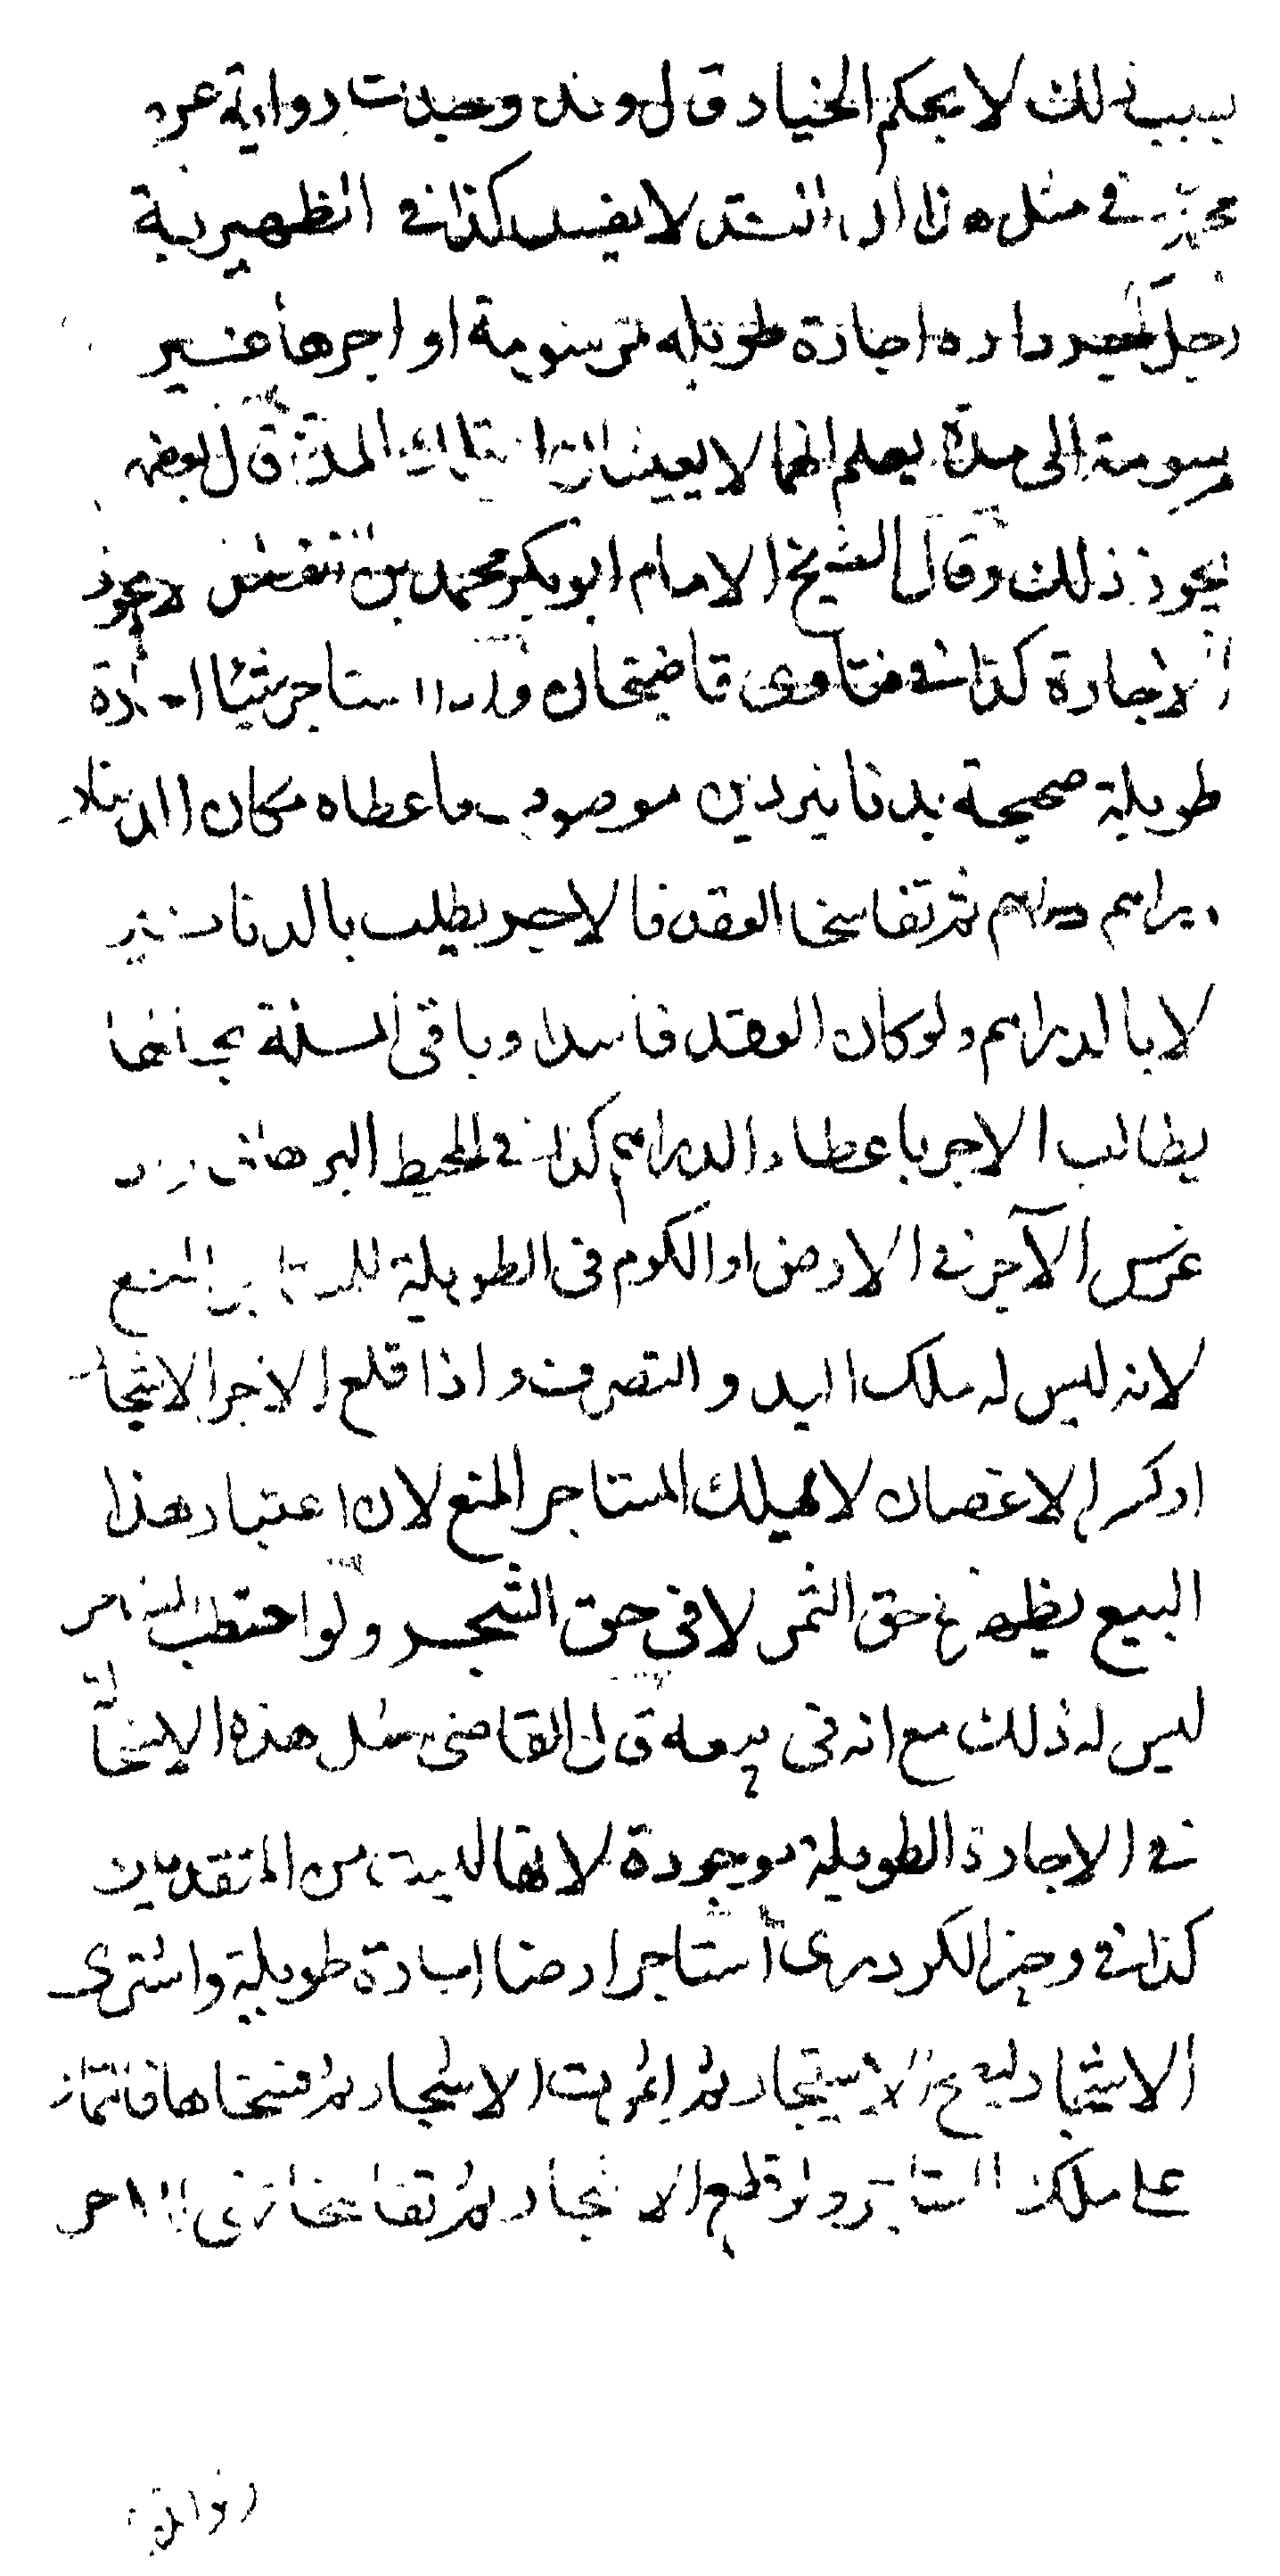 بسبب ذلك لا بحكم الخيار قال وقد وجدت رواية عن
محمد في مثل هذا ان العقد لا يفسد كذا في الظهيرية
رجل آجر داره اجارة طويلة مرسومة او اجرها غير
مرسومة الى مدة يعلم انهما لا يعيشان الى تلك المدة قال بعضهم
يجوز ذلك وقال الشيخ الامام ابو بكر محمد بن الفضل لا يجوز
الاجارة كذا في فتاوى قاضيخان واذا استاجر شيئا اجارة
طويلة صحيحة بدنانير دين موصوف واعطاه مكان الدنانير
دراهم دراهم ثم تفاسخا العقد فالاجر يطلب بالدنانير
لا بالدراهم ولو كان العقد فاسدا وباقي المسئلة بحالها
يطالب الاجر باعطاء الدراهم كذا في المحيط البرهاني
غرس الآجر في الارض او الكروم في الطويلة للمستاجر المنع
لانه ليس له ملك اليد والتصرف واذا قلع الاجر الاشجار
او كسر الاغصان لا يملك المستاجر المنع لان اعتبار هذا
البيع يظهر في حق الثمر لا في حق الشجر ولو احتطب المستاجر
ليس له ذلك مع انه في بيعه قال القاضي مثل هذه الاشياء
في الاجارة الطويلة موجودة لانها ليست من المتقدمين
كذا في وجيز الكردري استاجر ارضا اجارة طويلة واشترى
الاشجار ليصح الاستيجار ثم اثمرت الاشجار ثم فسخاها فالثمار
على ملك المستاجر ولو قطع الاشجار ثم تفاسخا ففي الاجر